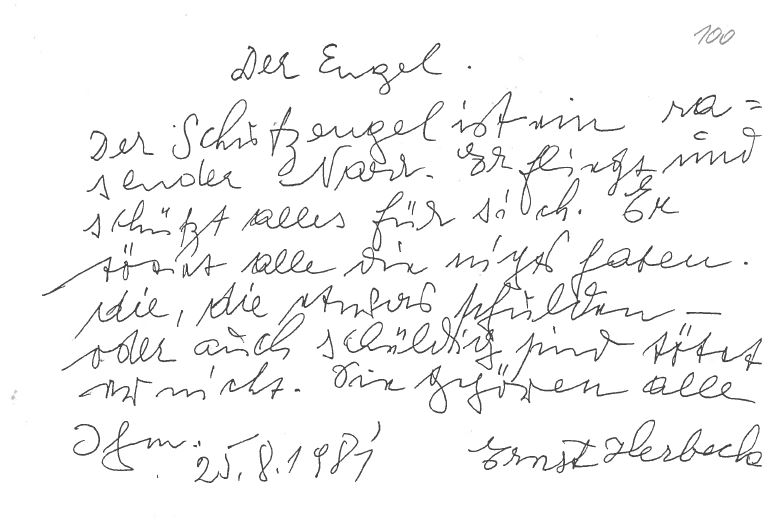 100
Der Engel.
Der Schutzengel ist ein ra=
sender Narr. Er fliegt und
schützt alles für sich. Er
tötet alle die nichts haben.
die, die etwas schulden –
oder auch schuldig sind tötet
er nicht. Die gehören alle
Ihm.
25.8.1981 Ernst Herbeck